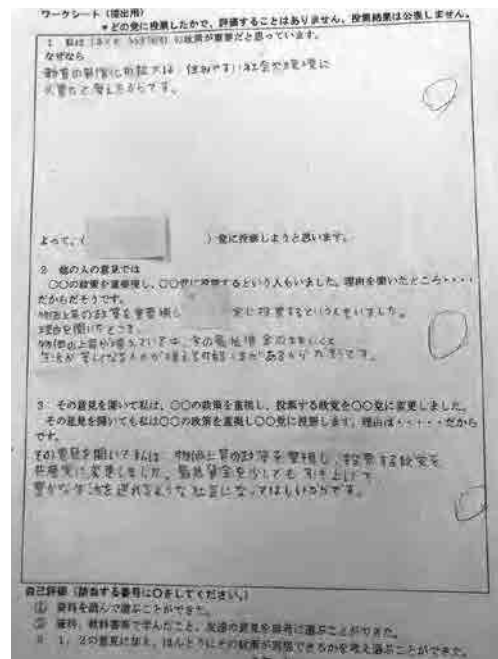 ワークシート(提出用)
*どの党に投票したかで、評価することはありません、投票結果は公表しません。
1 私は の政策が重要だと思っています。
なぜなら
教育の無償化の拡大は、住みやすい社会や環境に
必要だと考えたからです。
よって、( )党に投票しようと思います。
2 他の人の意見では
〇〇の政策を重要視し、〇〇党に投票するという人もいました。理由を聞いたところ・・・・
だからだそうです。
物価上昇の政策を重要視し 党に投票するという人もいました。
理由を聞いたところ、
物価の上昇が続いていて、今の最低賃金のままだと
生活が苦しくなる人が増える可能性があるからだそうです。
3 その意見を聞いて私は、〇〇の政策を重視し、投票する政党を〇〇党に変更しました。
その意見を聞いても私は〇〇の政策を重視し〇〇党に投票します。理由は・・・・・だから
です。
その意見を聞いて私は、物価上昇の政策を重視し、投票する政党を
共産党に変更しました。最低賃金を少しでも引き上げて
豊かな生活を送れるような社会になってほしいからです。
自己評価(該当する番号に〇をしてください。)
① 資料を読んで選ぶことができた。
② 資料、教科書等で学んだこと、友達の意見を参考に選ぶことができた。
3 1、2の意見に加え、ほんとうにその政策が実現できるかを考え選ぶことができた。